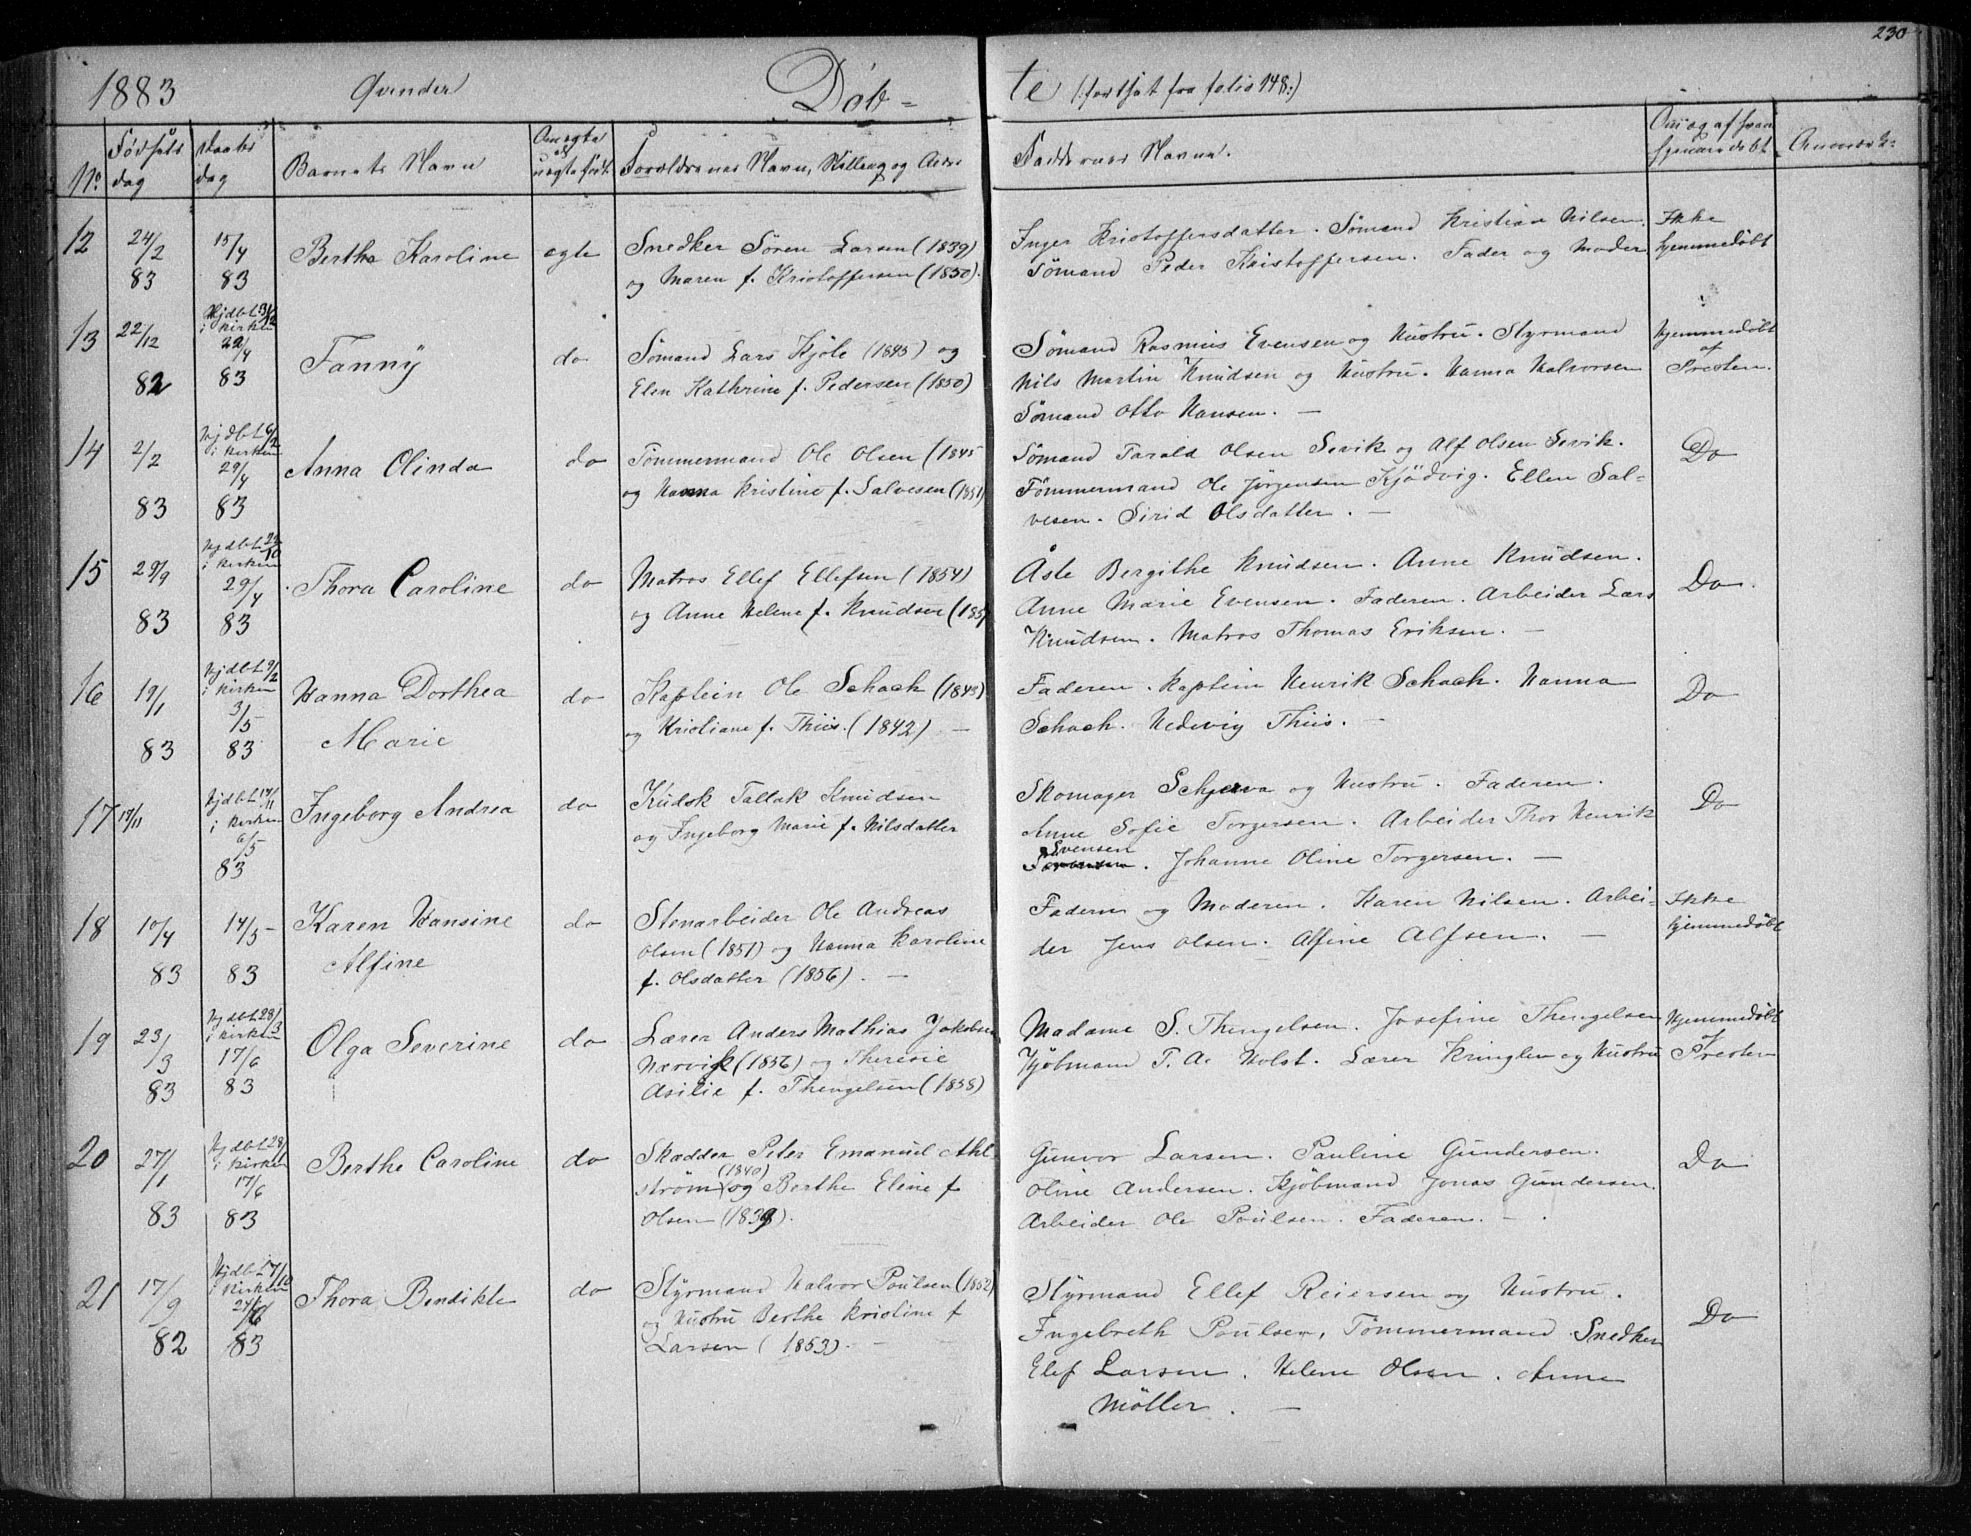 230
1883 Qvinder Döb- te (:fortsat fra folio 148:)
No Födsels dag Daabs dag Barnets Navn Om egte el uegte födt Forældrenes Navn, Stilling og Alder Faddernes Navne. Om og af hvem hjemmedöbt Anmærk:
12 24/2 83 15/4 83 Berthe Karoline egte
Snedker Sören Larsen (1839)
og Maren f. Kristoffersen (1850).
Inger Kristoffersdatter. Sömand Kristian Nilsen.
Sömand Peder Kristoffersen. Fader og Moder
Ikke
hjemmedöbt
13 22/12 82 Hjdbt 31/12 i kirken 22/4 83 Fanny do
Sömand Lars Kjöle (1845) og
Elen Kathrine f. Pedersen (1850)
Sömand Rasmus Evensen og Hustru. Styrmand
Nils Martin Knudsen og Hustru. Hanna Halvorsen
Sömand Otto Hansen. —
Hjemmedöbt
af
Presten.
14 2/2 83 Hjdbt 6/2 i kirken 29/4 83 Anna Olinda do
Tömmermand Ole Olsen (1845
og Hanna Kristine f. Salvesen (1851)
Sömand Tarald Olsen Sevik og Alf Olsen Sevik.
Tömmermand Ole Jörgensen Kjödvig. Ellen Sal-
vesen. Sirid Olsdatter. —
Do
15 29/9 83 Hjdbt 22/10 i kirken 29/4 83 Thora Caroline do
Matros Ellef Ellefsen (1854)
og Anne Helene f. Knudsen (185
Åste Bergithe Knudsen. Anne Knudsen.
Anne Marie Evensen. Faderen. Arbeider Lars
Knudsen. Matros Thomas Eriksen. —
Do.
16 19/1 83 Hjdbt 9/2 i kirken 3/5 83 Hanna Dorthea
Marie do
Kaptein Ole Schach (1843)
og Kristiane f. Thiis. (1842) —
Faderen. Kaptein Henrik Schach. Hanna
Schach. Hedevig Thiis. —
Do
17 17/11 Hjdbt 17/11 i kirken 6/5 83 Ingeborg Andrea do
Kudsk Tallak Knudsen
og Ingeborg Marie f. Nilsdatter
Skomager Schjerva og Hustru. Faderen.
Anne Sofie Torgersen. Arbeider Thor Henrik
Evensen
Sörensen. Johanne Oline Torgersen. —
Do
18 10/4 83 14/5 83 Karen Hansine
Alfine do
Stenarbeider Ole Andreas
Olsen (1851) og Hanna Karoline
f. Olsdatter (1856). —
Faderen og Moderen. Karen Nilsen. Arbei-
der Jens Olsen. Alfine Alfsen. —
Ikke
hjemmedöbt
19 23/3 83 Hjdbt 28/3 i kirken 17/6 83 Olga Severine do
Lærer Anders Mathias Jakobsen
Nærvik (1856) og Theresie
Asilie f. Thengelsen (1858)
Madame S. Thengelsen. Josefine Thengelsen
Kjöbmand T. A. Holst. Lærer Kringlen og Hustru
Hjemmedöbt
af
Presten
20 27/1 83 Hjdbt 28/1 i kirken 17/6 83 Berthe Caroline do
Skrædder Peter Emanuel Ahl
(1840)
ström og Berthe Eline f
Olsen (1839).
Gunvor Larsen. Pauline Gundersen.
Oline Andersen. Kjöbmand Jonas Gundersen.
Arbeider Ole Poulsen. Faderen. —
Do
21 17/9 82 Hjdbt 17/10 i kirken 24/6 83 Thora Bendikte do
Styrmand Halvor Poulsen (1852)
og Hustru Berthe Kristine f
Larsen (1853). —
Styrmand Ellef Reiersen og Hustru.
Ingebreth Poulsen, Tömmermand. Snedker
Elef Larsen. Helene Olsen. Anne
Möller. —
Do